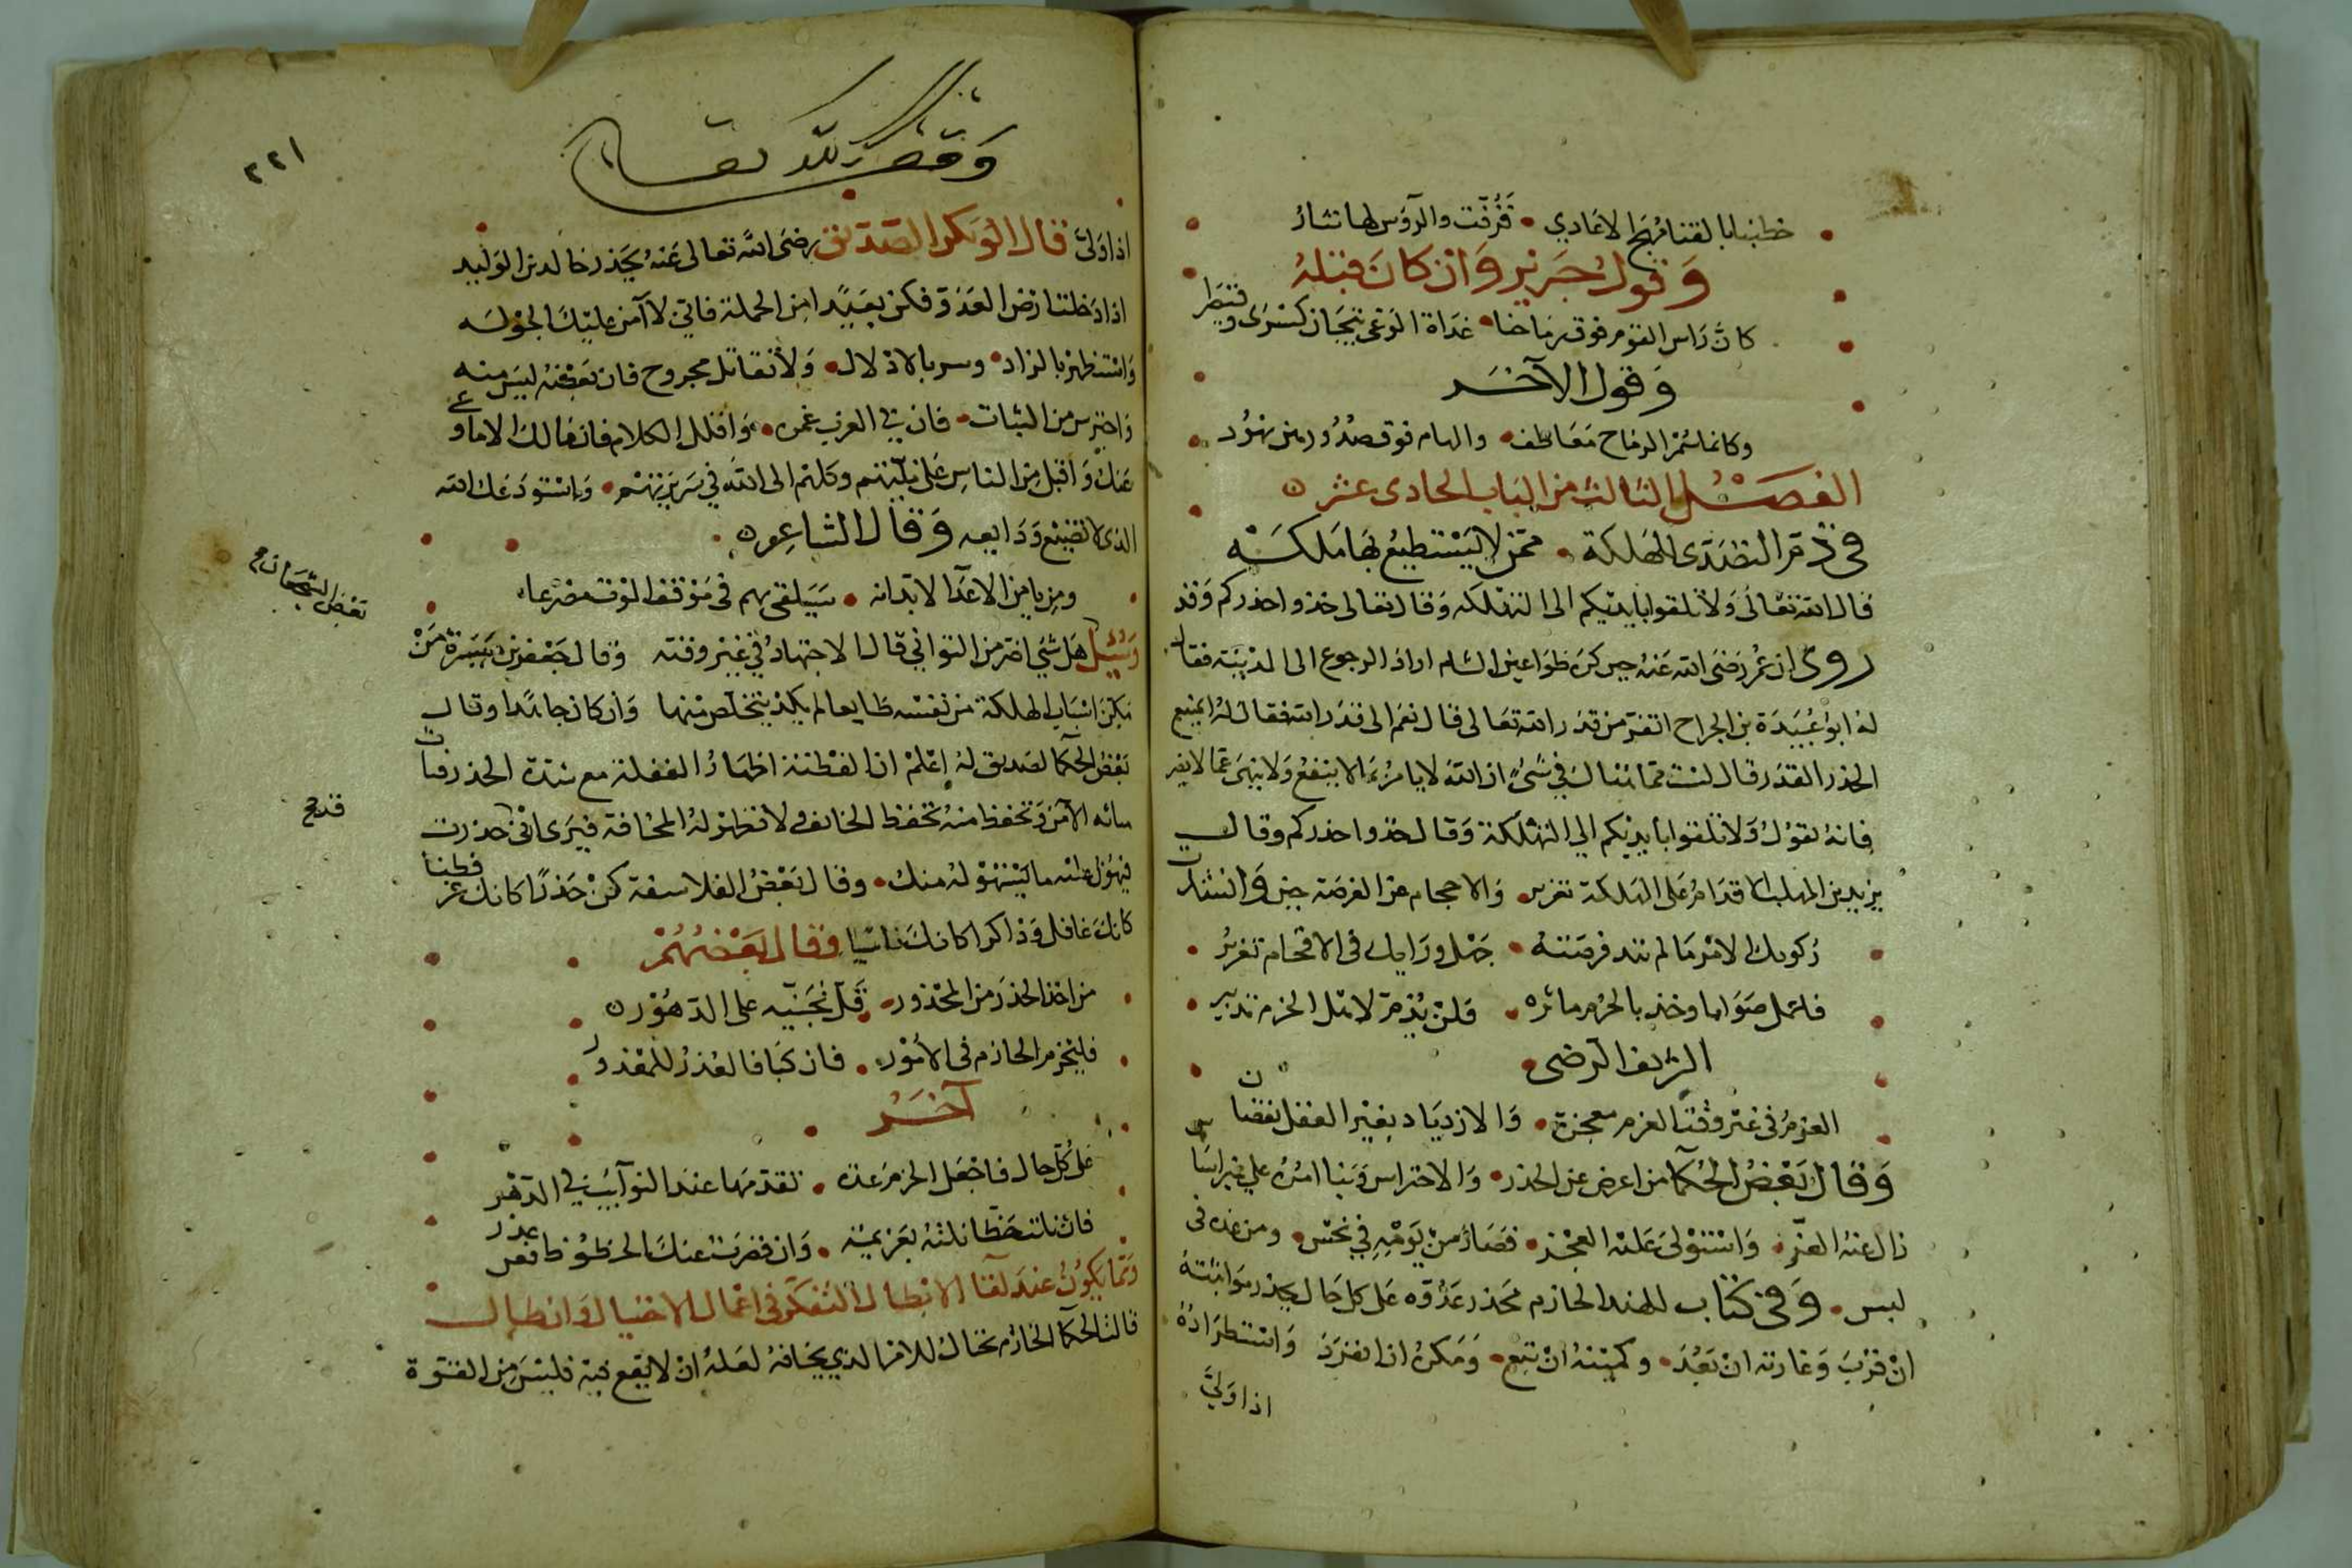 خطبنا بالقنا مهج الاعادي • فزفت والرؤس لها نثار
وقول جرير وان كان قبله
كان راس القوم فوق رماحنا • غداة الوغى تيجان كسرى وقيصرا
وقول الآخر
وكانما سمر الرماح معاطف • والهام فوق صدورهن نهود
الفصل الثالث من الباب الحادى عشر
فى ذم التصدى للهلكة • ممن لا يستطيع بها ملكه
قال الله تعالى ولا تلقوا بايديكم الى التهلكه وقال تعالى خذوا حذركم وقد
روى ان عمر رضى الله عنه حين كره طواعين الشام اراد الرجوع الى المدينة فقال
له ابو عبيدة بن الجراح اتفر من قدر الله تعالى قال نعم الى قدر الله فقال له اينفع
الحذر القدر قال لست مما هنالك في شىء ان الله لا يامر بما لا ينفع ولا ينهى عما لا يضر
فانه يقول ولا تلقوا بايديكم الي التهلكة وقال خذوا حذركم وقال
يزيد بن المهلب الاقدام على الهلكة تغرير • والاحجام عن الفرصة جبن وانشد
ركوبك الامر ما لم تبد فرصته • جهل ورايك فى الاقحام تغرير
فاعمل صوابا وخذ بالحزم ماثره • فلن يذم لاهل الحزم تدبير
الشريف الرضى
العزم فى غير وقت العزم معجزة • والازدياد بغير العقل نقصان
وقال بعض الحكما من اعرض عن الحذر • والاحتراس وبنا امره علي غير اساس
زال عنه العز • واستولى عليه العجز • فصار من يومه في نحس • ومن غده فى
لبس • وفى كتاب للهند الحازم يحذر عدوه على كل حال يحذر مواثبته
ان قرب وغارته ان بعد • وكمينه ان تبع • ومكره ان انفرد واستطراده
اذا ولي
وقف لله تعالى
٢٢١
اذا ولى قال ابو بكر الصديق رضى الله تعالى عنه يحذر خالد بن الوليد
اذا دخلت ارض العدو فكن بعيدا من الحملة فاني لا آمن عليك الجوله
واستظهر بالزاد • وسر بالادلال • ولا تقاتل بمجروح فان بعضه ليس منه
واحترس من البيات • فان في العرب غره • واقلل الكلام فانما لك الا ما وعي
عنك واقبل من الناس علانيتهم وكلهم الى الله في سريرتهم • واستودعك الله
الذى لا تضيع ودايعه وقال الشاعر
ومن يامن الاعدا لا بد انه • سيلقى بهم فى موقف الموت مصرعا
وسئل هل شئ اضر من التواني قال الاجتهاد في غير وقته وقال جعفر بن ميسرة من
بعض الشجعان
مكن اسباب الهلكة من نفسه طايعا لم يكد يتخلص منها وان كان جاهدا وقال
بعض الحكما لصديق له اعلم ان الفطنة اظهار الغفلة مع شدة الحذر
الآمن وتحفظ منه تحفظ الخائف ولا تظهر له المخافة فيرى ان قد حذرت
فيهون عليه ما يستهوله منك • وقال بعض الفلاسفة كن حذرا كانك غر فطنا
كانك غافل وذاكرا كانك ناسيا فقال بعضهم
من اخذ الحذر من المحذور • قل تجنيه على الدهور
فليحزم الحازم فى الامور • فان كبا فالعذر للمقدور
آخر
على كل حال فاجعل الحزم عدة • تقدمها عند النوآيب في الدهر
فان نلت حظا نلته بعزيمة • وان قصرت عنك الحظوظ فعن عذر
ومما يكون عند لقا الابطال التفكر فى اعمال الاحتيال وابطال
قالت الحكما الحازم يحتال للامر الذي يخافه لعله ان لا يقع فيه فليس من القوة